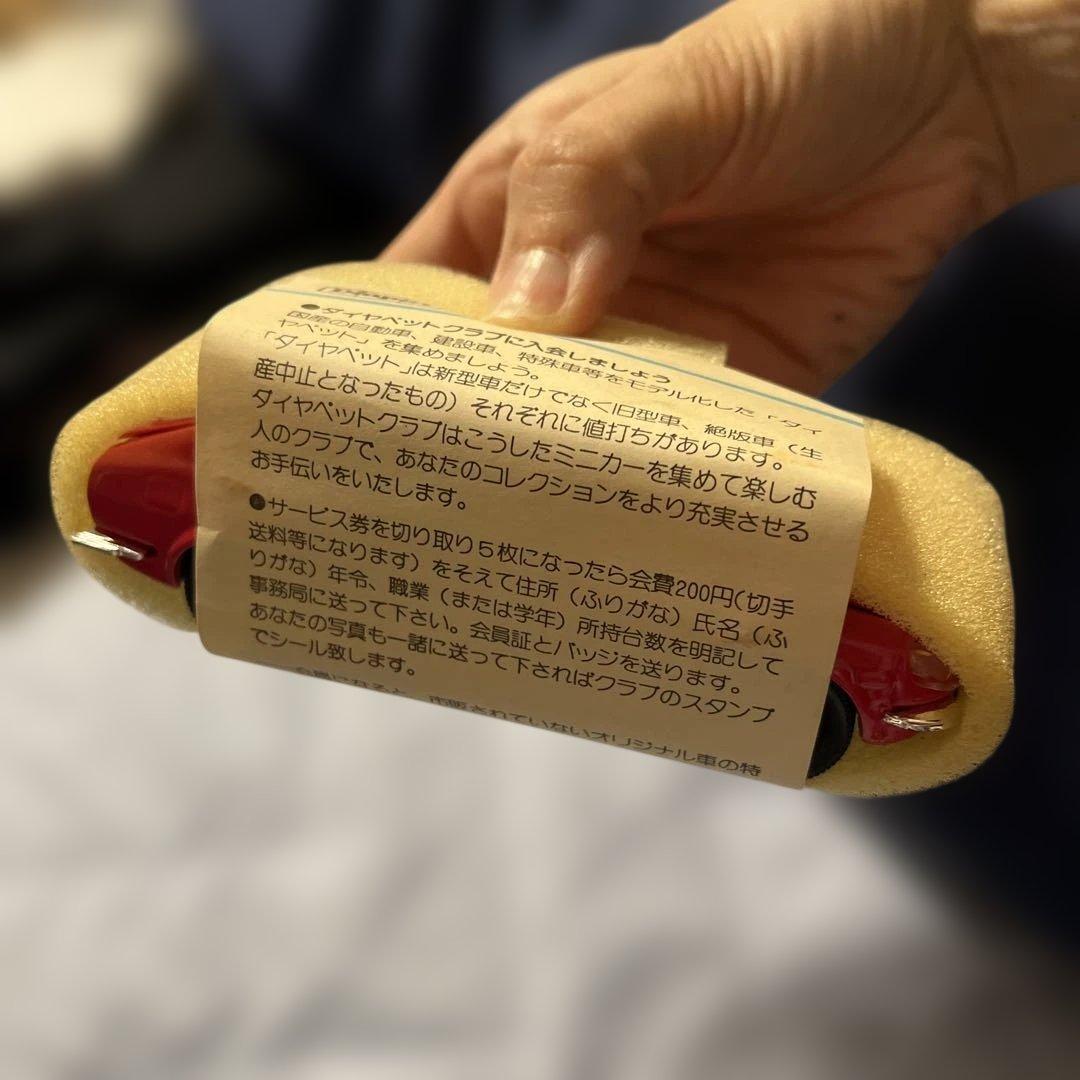 ●ダイヤペットクラブに入会しましょう
国産の自動車、建設車、特殊車等をモデル化した「ダイ
ヤペット」を集めましょう。
「ダイヤペット」は新型車だけでなく旧型車、絶版車（生
産中止となったもの）それぞれに値打ちがあります。
ダイヤペットクラブはこうしたミニカーを集めて楽しむ
人のクラブで、あなたのコレクションをより充実させる
お手伝いをいたします。
●サービス券を切り取り5枚になったら会費200円（切手
送料等になります）をそえて住所（ふりがな）氏名（ふ
りがな）年令、職業（または学年）所持台数を明記して
事務局に送って下さい。会員証とバッジを送ります。
あなたの写真も一諸に送って下さればクラブのスタンプ
でシール致します。
会員になると、市販されていないオリジナル車の特